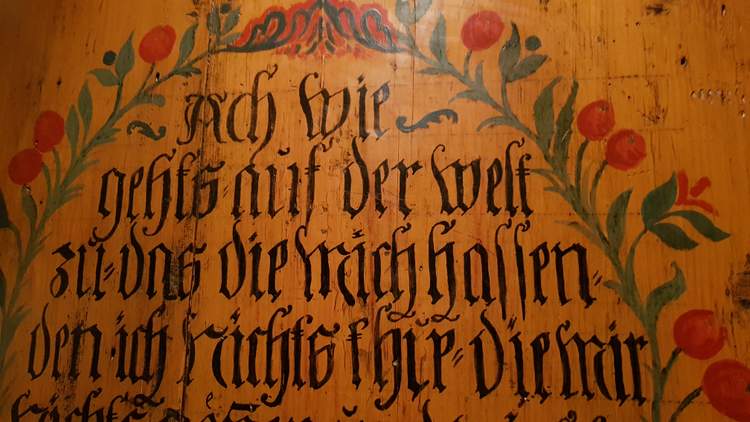 Ach wie
gehts auf der welt
zu das die mich hassen
den ich nichts thue die mir
nichts